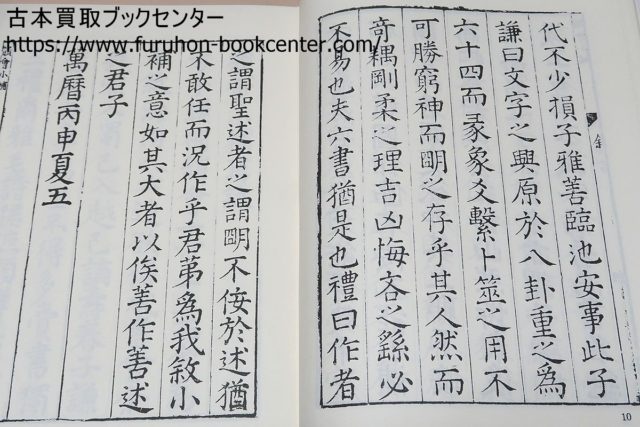 古本買取ブックセンター
https://www.furuhon-bookcenter.com/
代不少損子雅善臨池安事此子
謙曰文字之興原於八卦重之為
六十四而彖象爻繫卜筮之用不
可勝窮神而明之存乎其人然而
竒耦剛柔之理吉凶悔吝之繇必
不易也夫六書猶是也禮曰作者
之謂聖述者之謂明不佞於述猶
不敢任而況作乎君第為我敘小
補之意如其大者以俟善作善述
之君子
萬曆丙申夏五
10